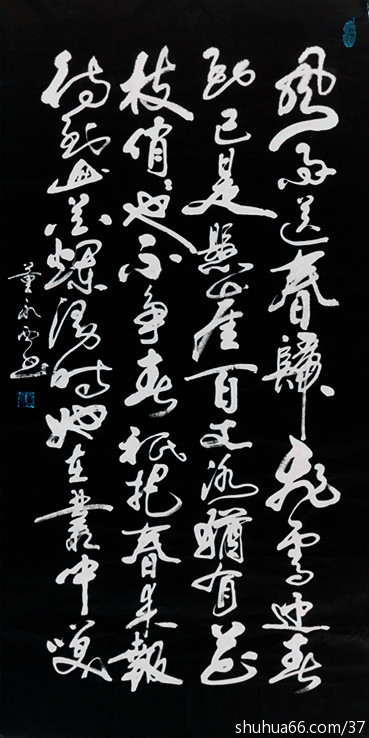 風雨送春歸飛雪迎春
到已是懸崖百丈冰猶有花
枝俏々也不爭春祇把春来報
待到山花爛漫時她在叢中咲
董永
shuhua66.com/37